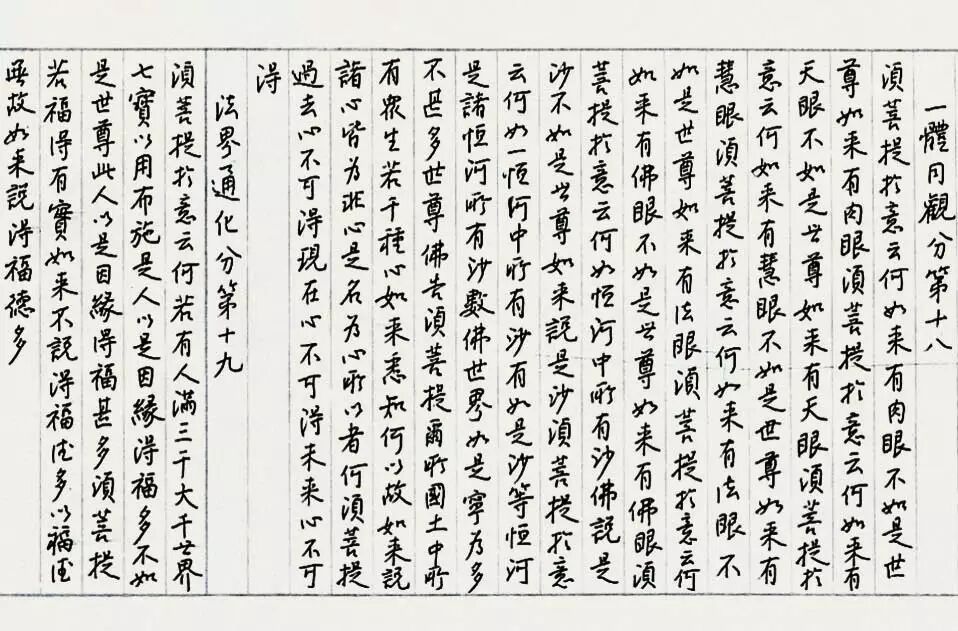 一體同觀分第十八
須菩提於意云何如来有肉眼不如是世
尊如来有肉眼須菩提於意云何如来有
天眼不如是世尊如来有天眼須菩提於
意云何如来有慧眼不如是世尊如来有
慧眼須菩提於意云何如来有法眼不
如是世尊如来有法眼須菩提於意云何
如来有佛眼不如是世尊如来有佛眼須
菩提於意云何如恒河中所有沙佛説是
沙不如是世尊如来説是沙須菩提於意
云何如一恒河中所有沙有如是沙等恒河
是諸恒河所有沙數佛世界如是寧為多
不甚多世尊佛告須菩提爾所國土中所
有衆生若干種心如来悉知何以故如来説
諸心皆為非心是名為心所以者何須菩提
過去心不可得現在心不可得未来心不可
得
法界通化分第十九
須菩提於意云何若有人滿三千大千世界
七寶以用布施是人以是因緣得福多不如
是世尊此人以是因緣得福甚多須菩提
若福得有實如来不説得福德多以福德
無故如来説得福德多